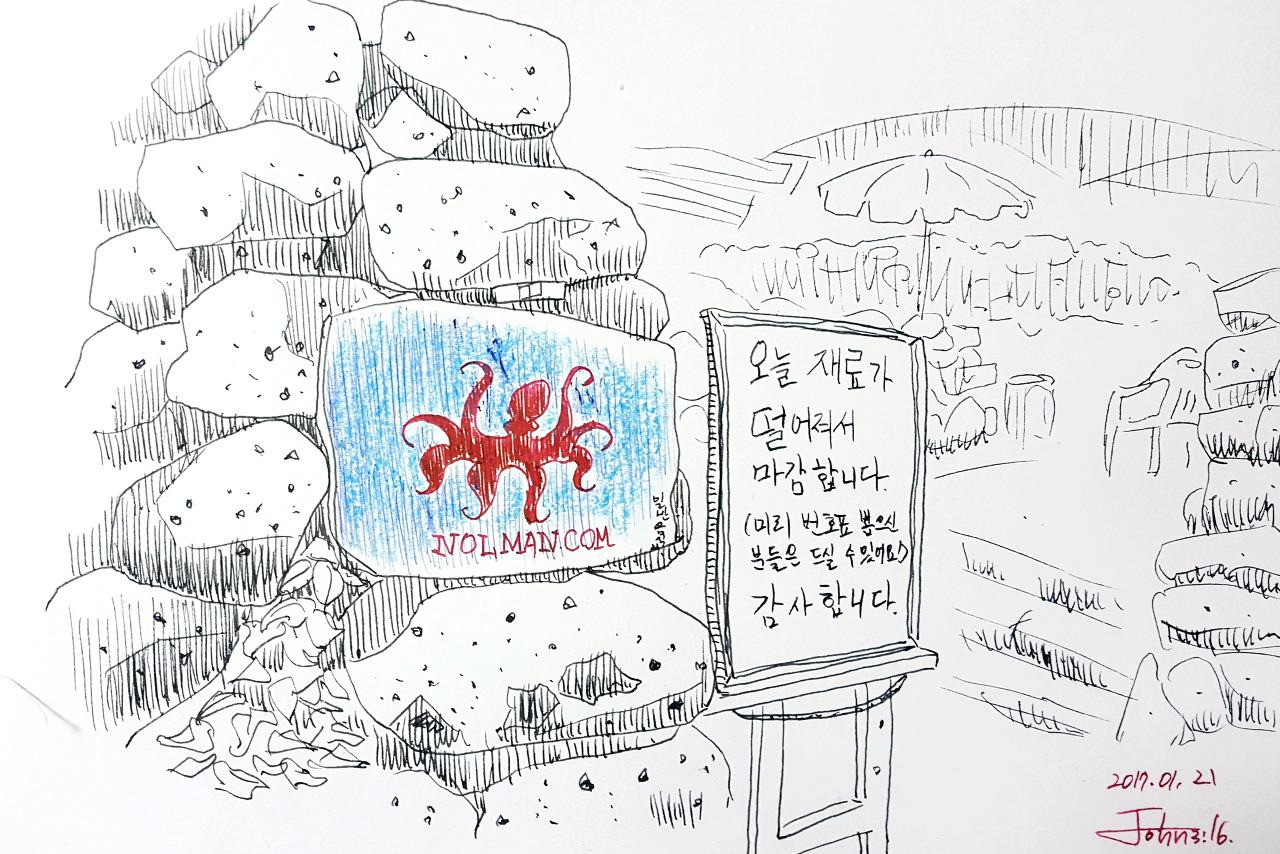 NOLMAN.COM
오늘 재료가
떨어져서
마감합니다.
(미리 번호표 뽑으신
분들은 드실 수 있어요!)
감사합니다.
2017.01.21
John3:16.